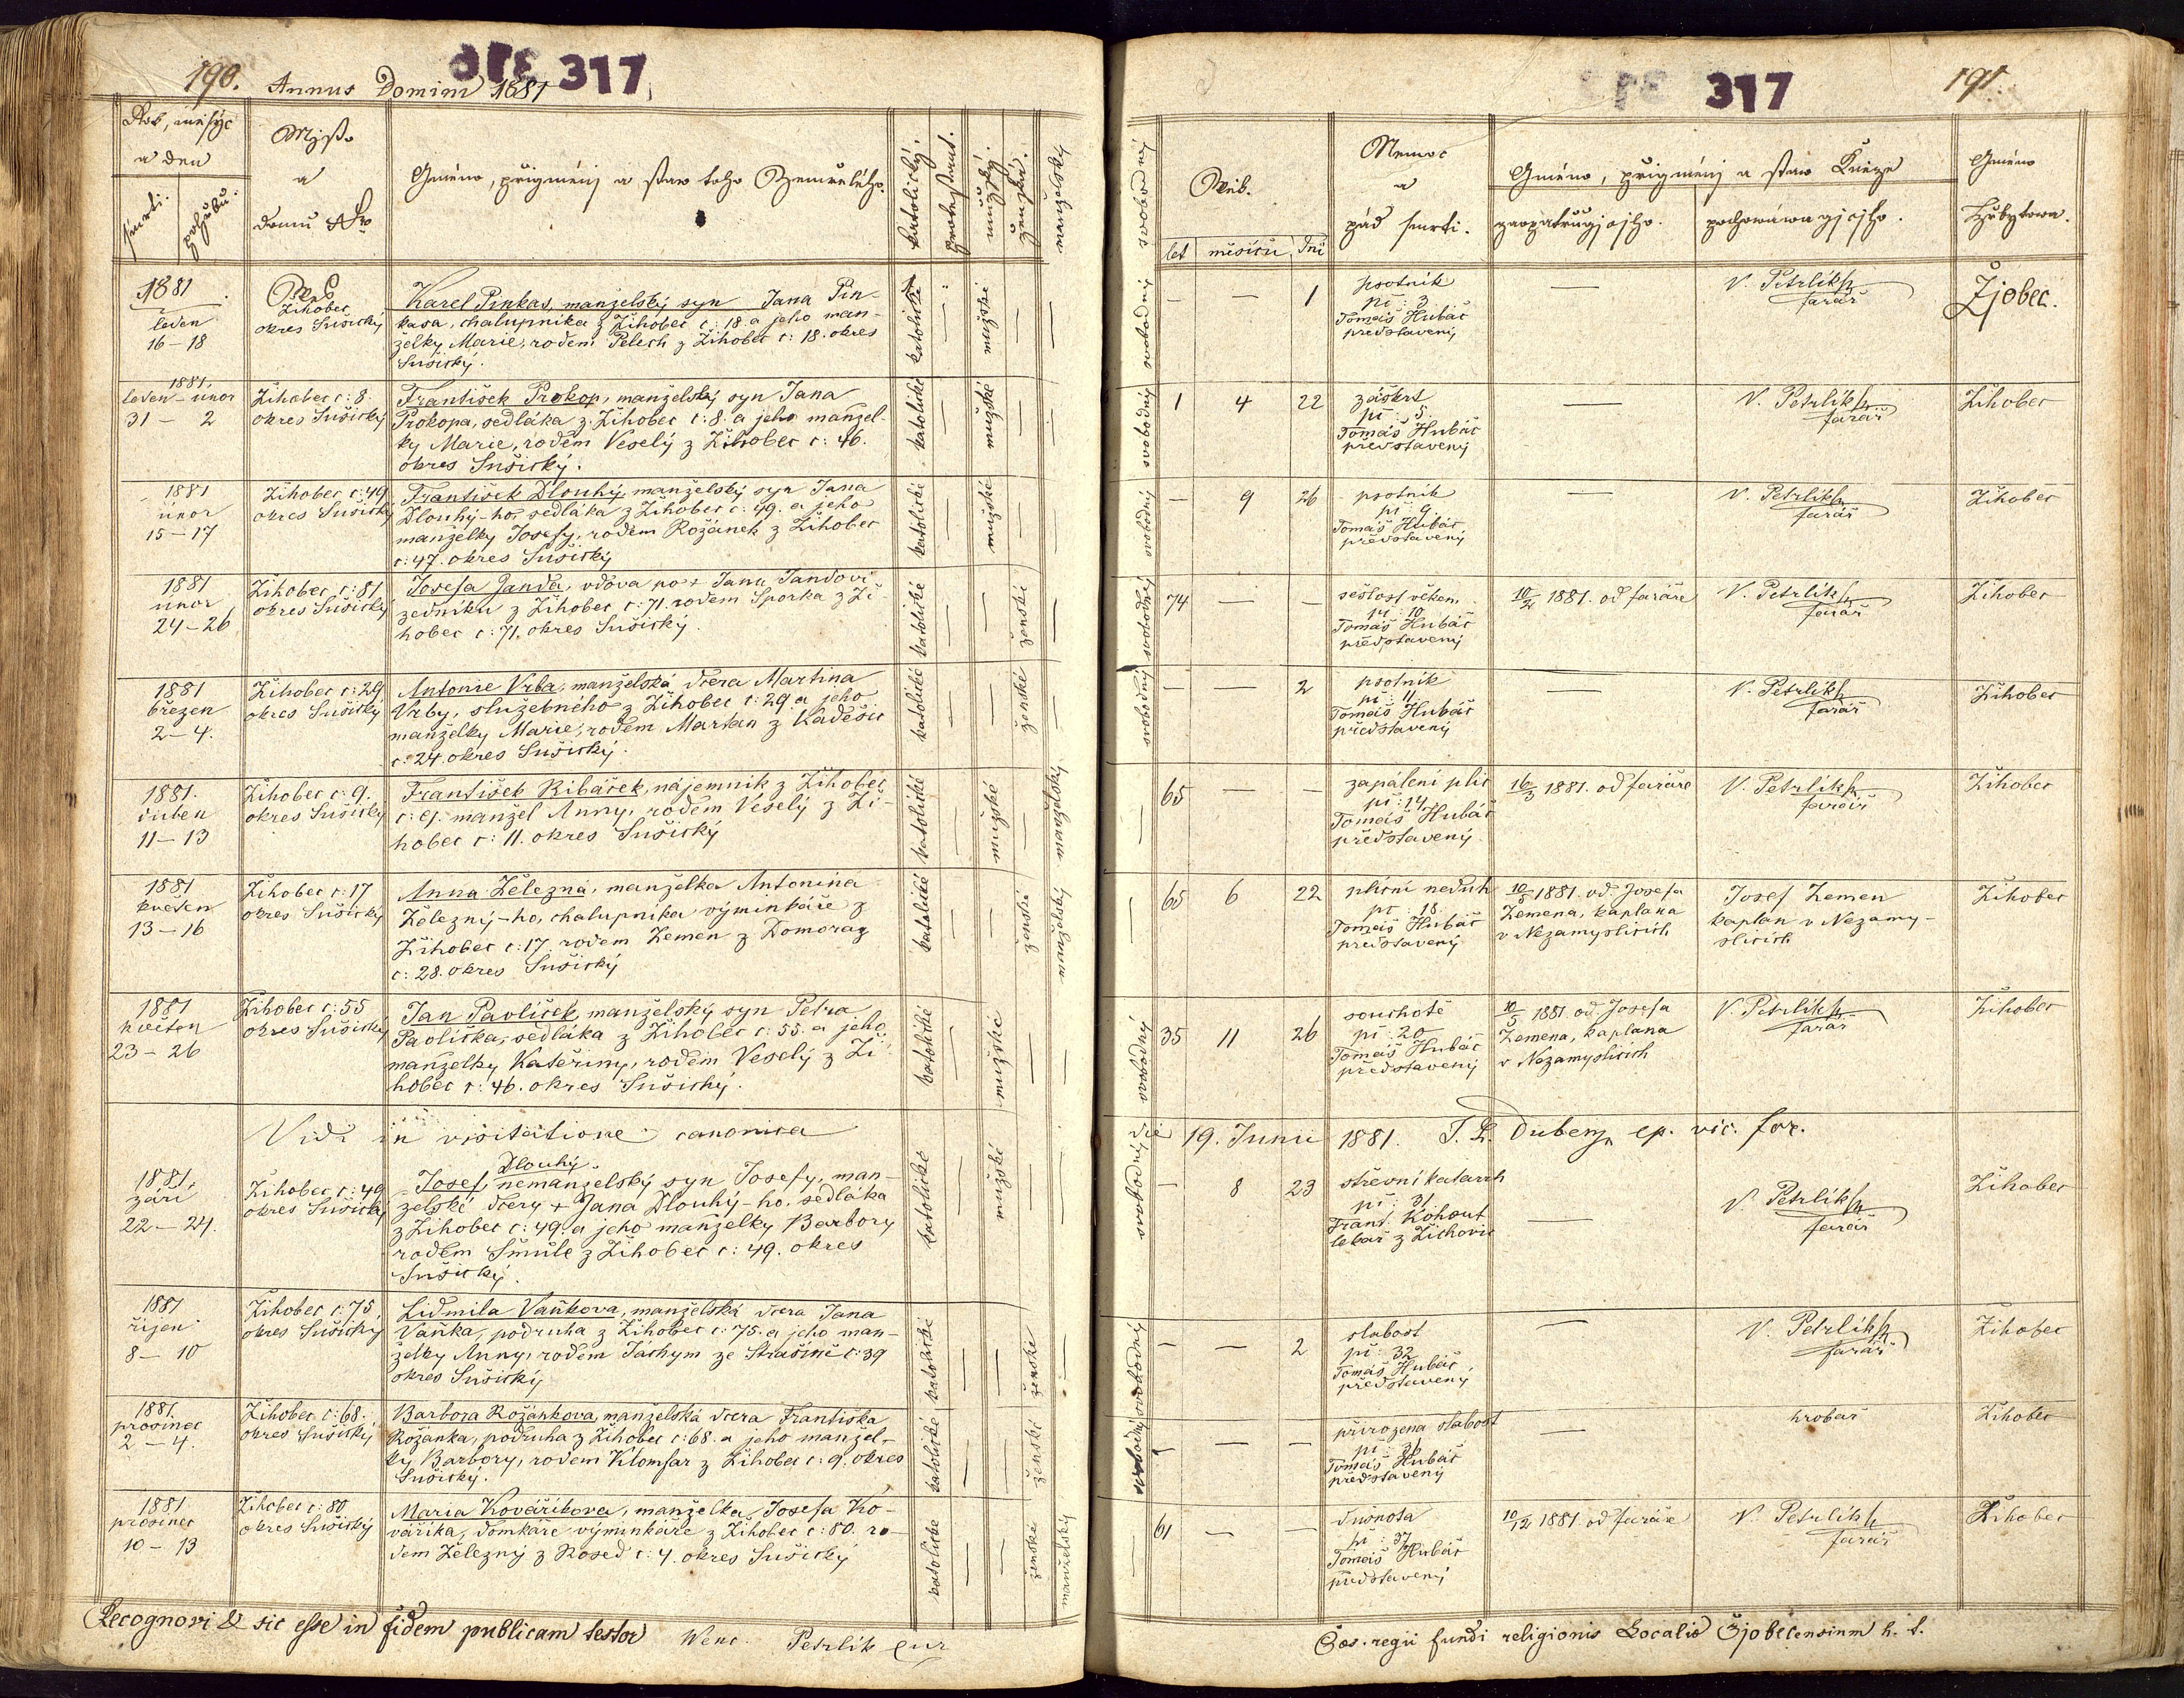 190. Annus Domini 1881 317
Rok, měsýc
a den
smrti. pohřbu.
Mjsto
a
domu Nro
Gméno, přigménj a staw toho Zemřelého.
katolický.
protestant.
mužský.
ženský.
manželský
1881
leden
16–18
Žihobec
okres Sušický
Karel Pinkas, manželský syn Jana Pin-
kasa, chalupníka z Žihobec č: 18. a jeho man-
želky Marie, rodem Pelech z Žihobec č: 18. okres
Sušický.
katolické — mužské — —
1881.
leden – únor
31 – 2
Žihobec č: 8.
okres Sušický
František Prokop, manželský syn Jana
Prokopa, sedláka z Žihobec č: 8. a jeho manžel-
ky Marie, rodem Veselý z Žihobec č: 46.
okres Sušický.
katolické — mužské — —
1881
únor
15–17
Žihobec č: 49
okres Sušický
František Dlouhý, manželský syn Jana
Dlouhý-ho, sedláka z Žihobec č: 49. a jeho
manželky Josefy, rodem Rožánek z Žihobec
č: 47. okres Sušický
katolické — mužské — —
1881
únor
24–26
Žihobec č: 81
okres Sušický
Josefa Janda, vdova po + Janu Jandovi
zedníku z Žihobec č: 71. rodem Sporka z Ži-
hobec č: 71. okres Sušický.
katolické — — ženské —
1881
březen
2–4.
Žihobec č: 29
okres Sušický
Antonie Vrba, manželská dcera Martina
Vrby, služebného z Žihobec č: 29 a jeho
manželky Marie, rodem Martan z Kadešic
č: 24. okres Sušický.
katolické — — ženské —
1881.
duben
11–13
Žihobec č: 9.
okres Sušický
František Ribáček, nájemník z Žihobec
č: 9. manžel Anny, rodem Veselý z Ži-
hobec č: 11. okres Sušický
katolické — mužské — manželský
1881
květen
13–16
Žihobec č: 17
okres Sušický
Anna Železná, manželka Antonína
Železný-ho, chalupníka výminkáře z
Žihobec č: 17. rodem Zemen z Domoraz
č: 28. okres Sušický
katolické — — ženské manželský
1881
květen
23–26
Žihobec č: 55
okres Sušický
Jan Pavlíček, manželský syn Petra
Pavlíčka, sedláka z Žihobec č: 55. a jeho
manželky Kateřiny, rodem Veselý z Ži-
hobec č: 46. okres Sušický.
katolické — mužské — —
Vidi in visitatione canonica
1881.
září
22–24.
Žihobec č: 49
okres Sušický
Dlouhý
Josef, nemanželský syn Josefy, man-
želské dcery + Jana Dlouhý-ho, sedláka
z Žihobec č: 49. a jeho manželky Barbory
rodem Šmůle z Žihobec č: 49. okres
Sušický.
katolické — mužské — —
1881
říjen
8–10
Žihobec č: 75
okres Sušický
Lidmila Vaňkova, manželská dcera Jana
Vaňka, podruha z Žihobec č: 75. a jeho man-
želky Anny, rodem Jáchym ze Strašíně č: 39
okres Sušický
katolické — — ženské —
1881.
prosinec
2–4.
Žihobec č: 68.
okres Sušický
Barbora Rožánkova, manželská dcera Františka
Rožánka, podruha z Žihobec č: 68. a jeho manžel-
ky Barbory, rodem Klomfar z Žihobec č: 9. okres
Sušický.
katolické — — ženské —
1881
prosinec
10–13
Žihobec č: 80
okres Sušický
Maria Kováříkova, manželka Josefa Ko-
váříka, domkáře výminkáře z Žihobec č: 80. ro-
dem Železný z Rosed č: 4. okres Sušický
katolické — — ženské manželský
Recognovi & sic esse in fidem publicam testor Wenc. Petrlik cur
317 191.
svobodný
Wěk.
let měsíců dní
Nemoc
a
pád smrti.
Gméno, přigménj a staw Kněze
zaopatřugjcjho. pochowáwagjcjho.
Gméno
Hřbytowa.
svobodný — — 1
psotník
pč: 3
Tomáš Hubáč
představený
—
V. Petrlík
farář
Žjobec.
svobodný 1 4 22
záškrt
pč: 5.
Tomáš Hubáč
představený
—
V. Petrlík
farář
Žihobec
svobodný — 9 26
psotník
pč: 9.
Tomáš Hubáč
představený
—
V. Petrlík
farář
Žihobec
svobodný 74 — —
sešlost věkem
pč: 10.
Tomáš Hubáč
představený
10/2 1881. od faráře
V. Petrlík
farář
Žihobec
svobodný — — 2
psotník
pč: 11.
Tomáš Hubáč
představený
—
V. Petrlík
farář
Žihobec
— 65 — —
zapálení plic
pč: 14.
Tomáš Hubáč
představený
16/3 1881. od faráře
V. Petrlík
farář
Žihobec
— 65 6 22
plicní neduh
pč: 18.
Tomáš Hubáč
představený
10/5 1881. od Josefa
Zemena, kaplana
v Nezamyslicích
Josef Zemen
kaplan v Nezamy-
slicích
Žihobec
svobodný 35 11 26
souchotě
pč: 20
Tomáš Hubáč
představený
10/5 1881 od Josefa
Zemena, kaplana
v Nezamyslicích
V. Petrlík
farář
Žihobec
die 19. Junii 1881. ep. vic. for.
svobodný — 8 23
střevní katarrh
pč: 31
Frant. Kohout
lekař z Žichovic
—
V. Petrlík
farář
Žihobec
svobodný — — 2
slabost
pč: 32
Tomáš Hubáč,
představený
—
V. Petrlík
farář
Žihobec
svobodný — — —
přirozena slabost
pč: 36
Tomáš Hubáč
představený
—
hrobař
Žihobec
— 61 — —
dusnota
pč: 37
Tomáš Hubáč
představený
10/12 1881. od faráře
V. Petrlík
farář
Žihobec
Caes. regii fundi religionis Localis Žjobecensium h. t.